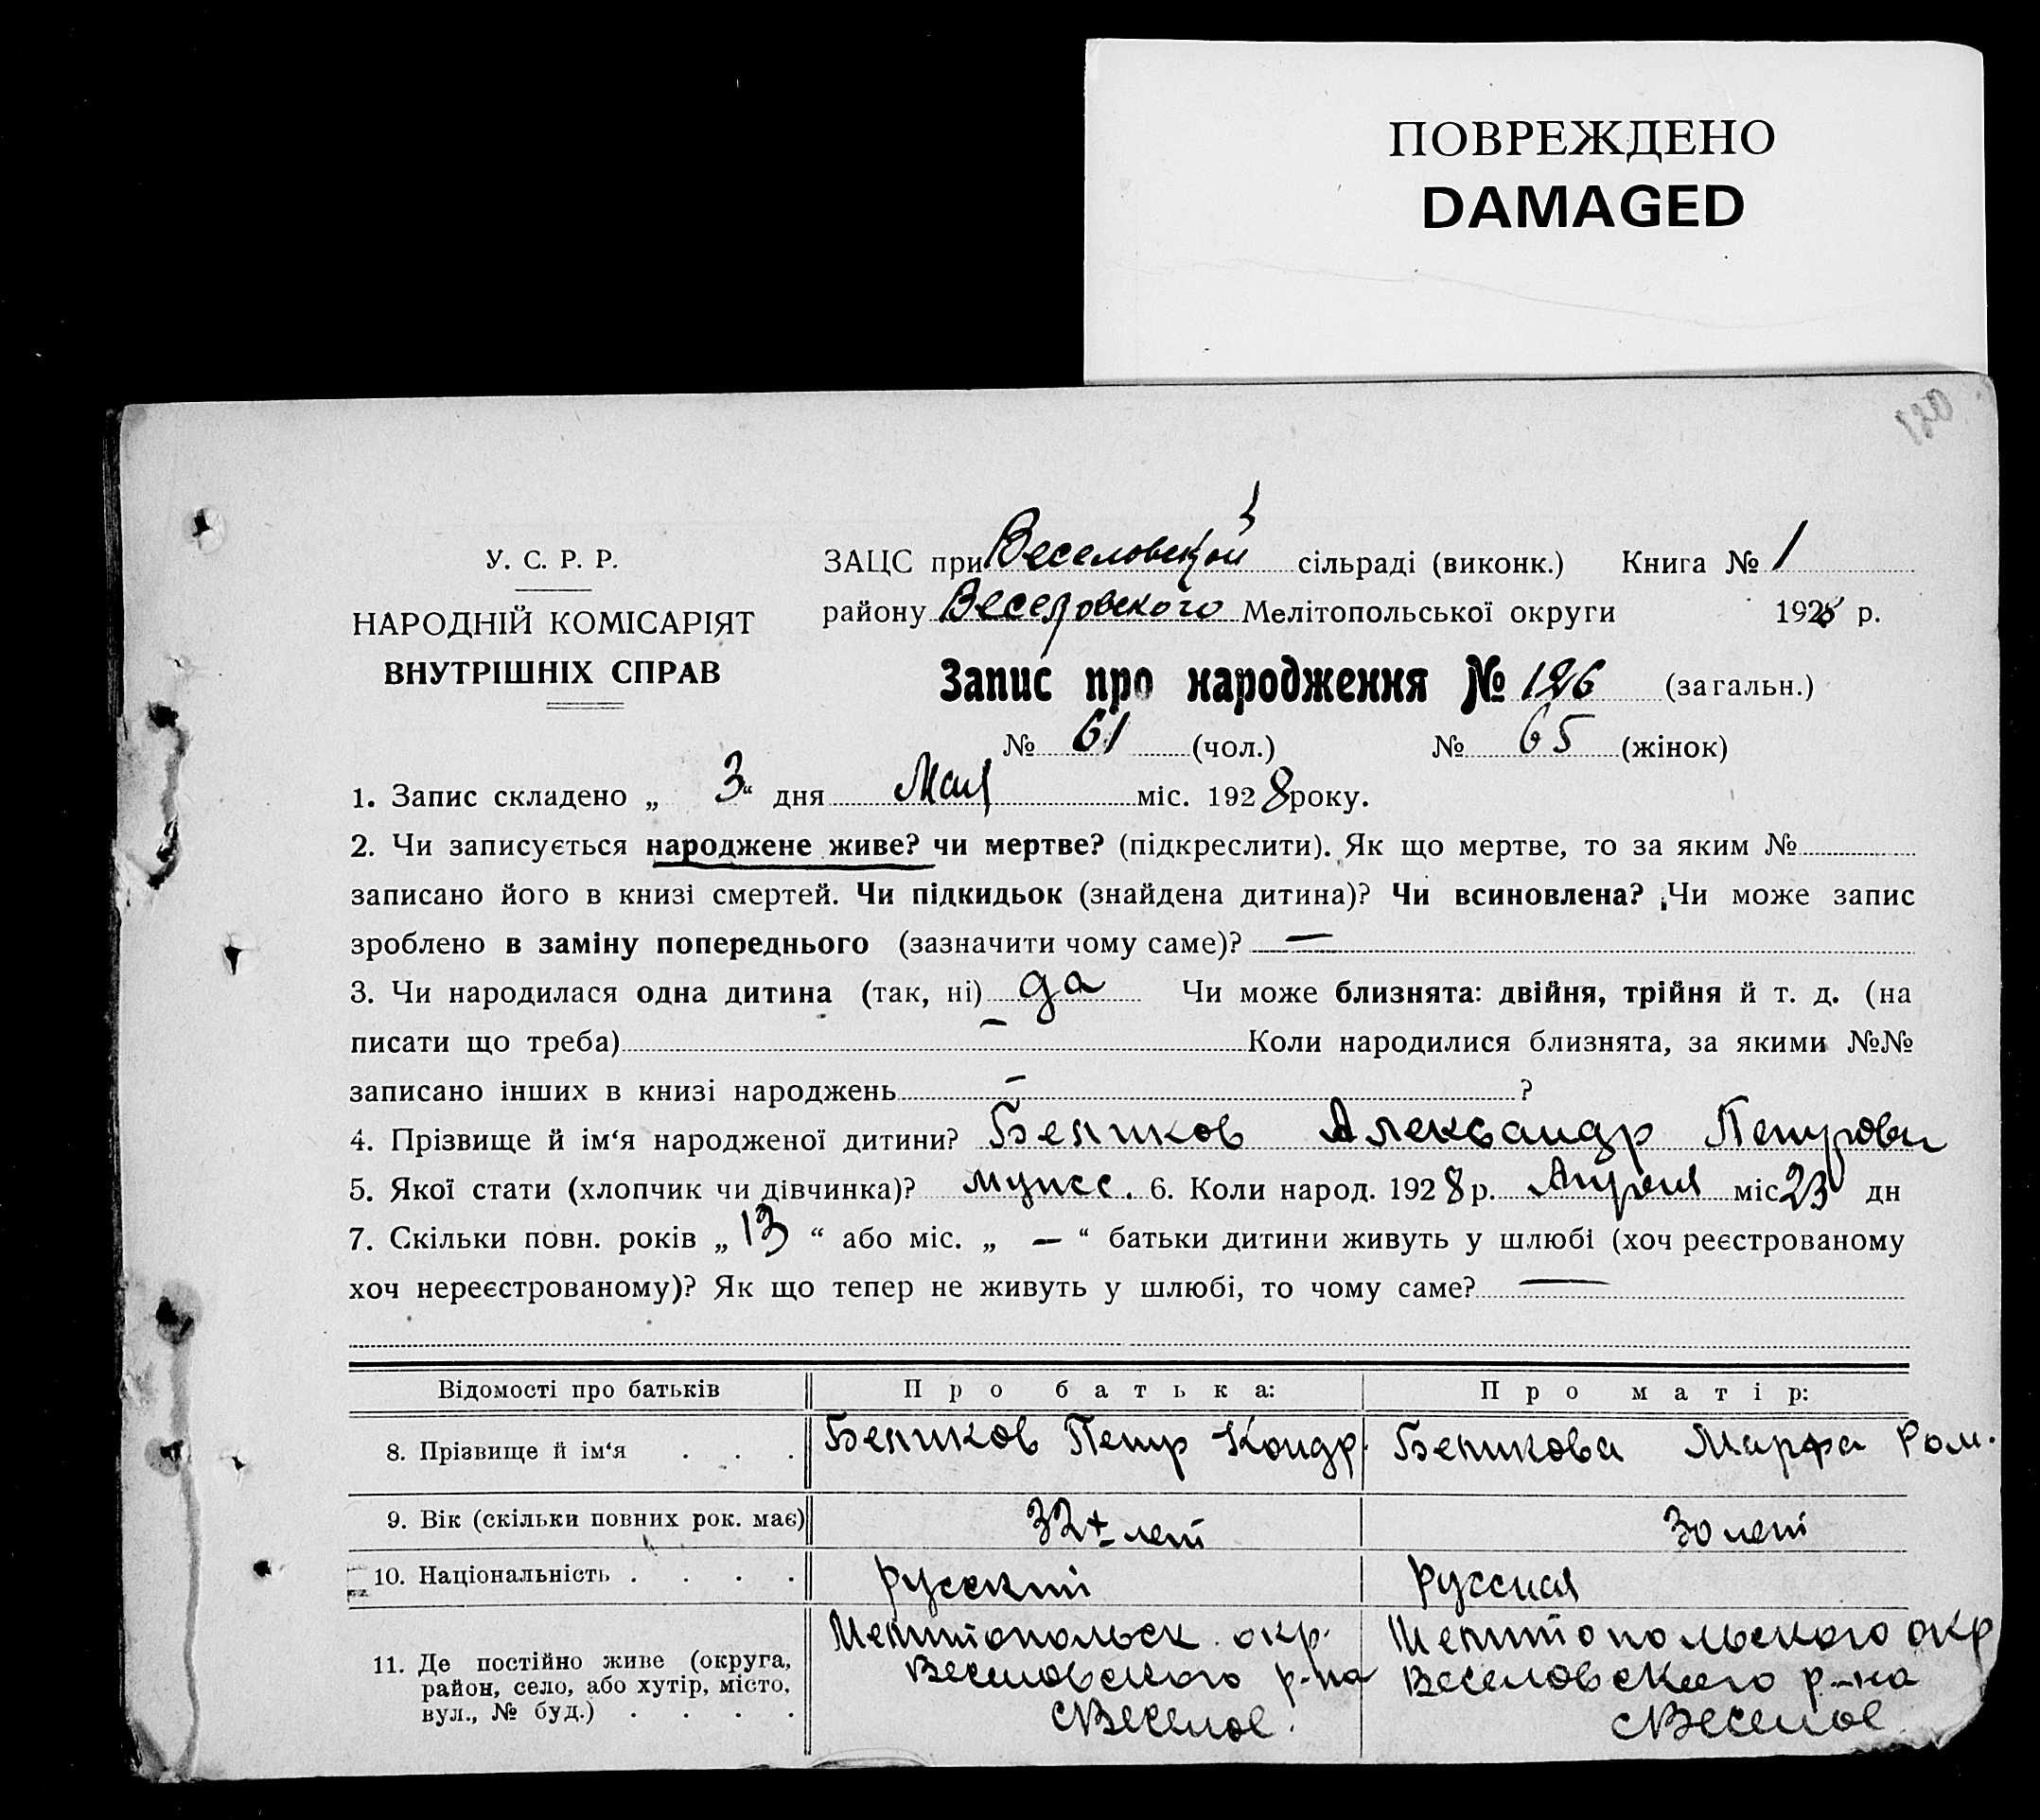 ПОВРЕЖДЕНО
DAMAGED
У. С. Р. Р.
НАРОДНІЙ КОМІСАРІЯТ
ВНУТРІШНІХ СПРАВ
ЗАЦС при Веселовской сільраді (виконк.) Книга № 1
району Веселовского Мелітопольської округи 1928 р.
Запис про народження № 126 (загальн.)
№ 61 (чол.) № 65 (жінок)
1. Запис складено „ 3 “ дня Мая міс. 1928 року.
2. Чи записується народжене живе? чи мертве? (підкреслити). Як що мертве, то за яким №
записано його в книзі смертей. Чи підкидьок (знайдена дитина)? Чи всиновлена? Чи може запис
зроблено в заміну попереднього (зазначити чому саме)? —
3. Чи народилася одна дитина (так, ні) да Чи може близнята: двійня, трійня й т. д. (на
писати що треба) — Коли народилися близнята, за якими №№
записано інших в книзі народжень — ?
4. Прізвище й ім‘я народженої дитини? Беликов Александр Петрович
5. Якої стати (хлопчик чи дівчинка)? мужес. 6. Коли народ. 1928 р. Апреля міс 23 дн
7. Скільки повн. років „ 13 “ або міс. „ — “ батьки дитини живуть у шлюбі (хоч реєстрованому
хоч нереєстрованому)? Як що тепер не живуть у шлюбі, то чому саме? —
Відомості про батьків Про батька: Про матір:
8. Прізвище й ім‘я . . . Беликов Петр Кондр. Беликова Марфа Ром.
9. Вік (скільки повних рок. має) 32 лет 30 лет
10. Національність . . . . русский русская
11. Де постійно живе (округа, район, село, або хутір, місто, вул., № буд.) . . . .
Мелитопольск. окр. Веселовского р-на с Веселое.
Мелитопольского окр Веселовского р-на с Веселое